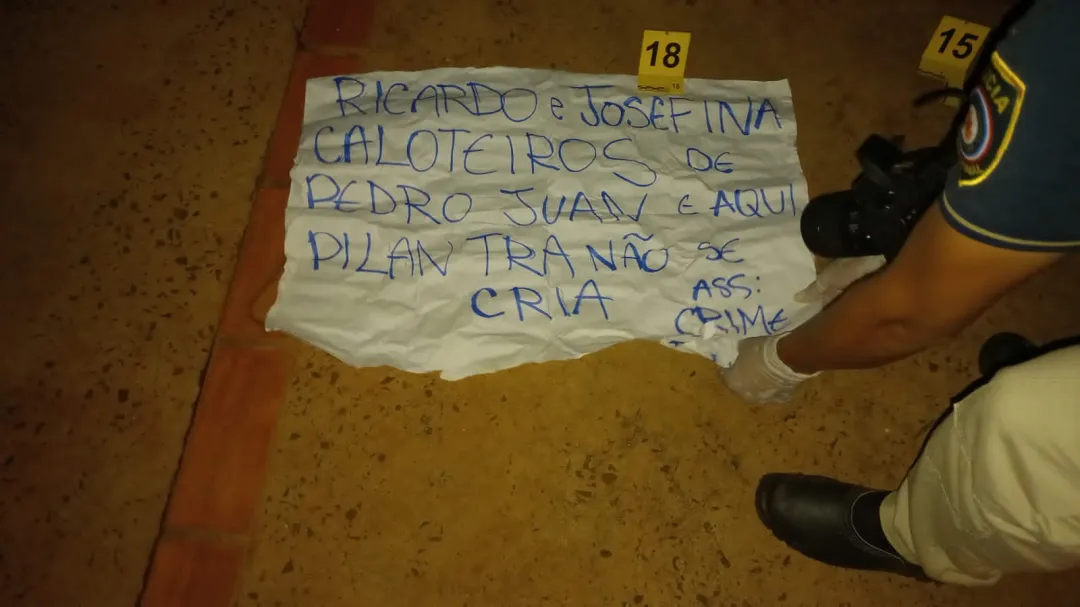 18
18
15
RICARDO e JOSEFINA
CALOTEIROS DE
PEDRO JUAN E AQUI
PILANTRA NÃO SE
CRIA ASS:
CRIME